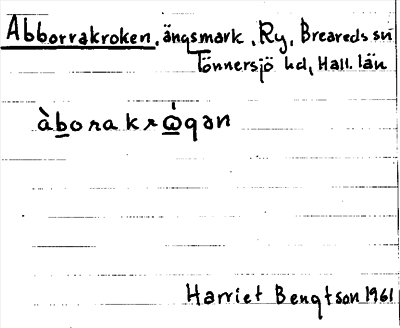 Abborrakroken, ängsmark, Ry, Breareds sn
Tönnersjö hd, Hall. län
àborakrω̇gan
Harriet Bengtson 1961